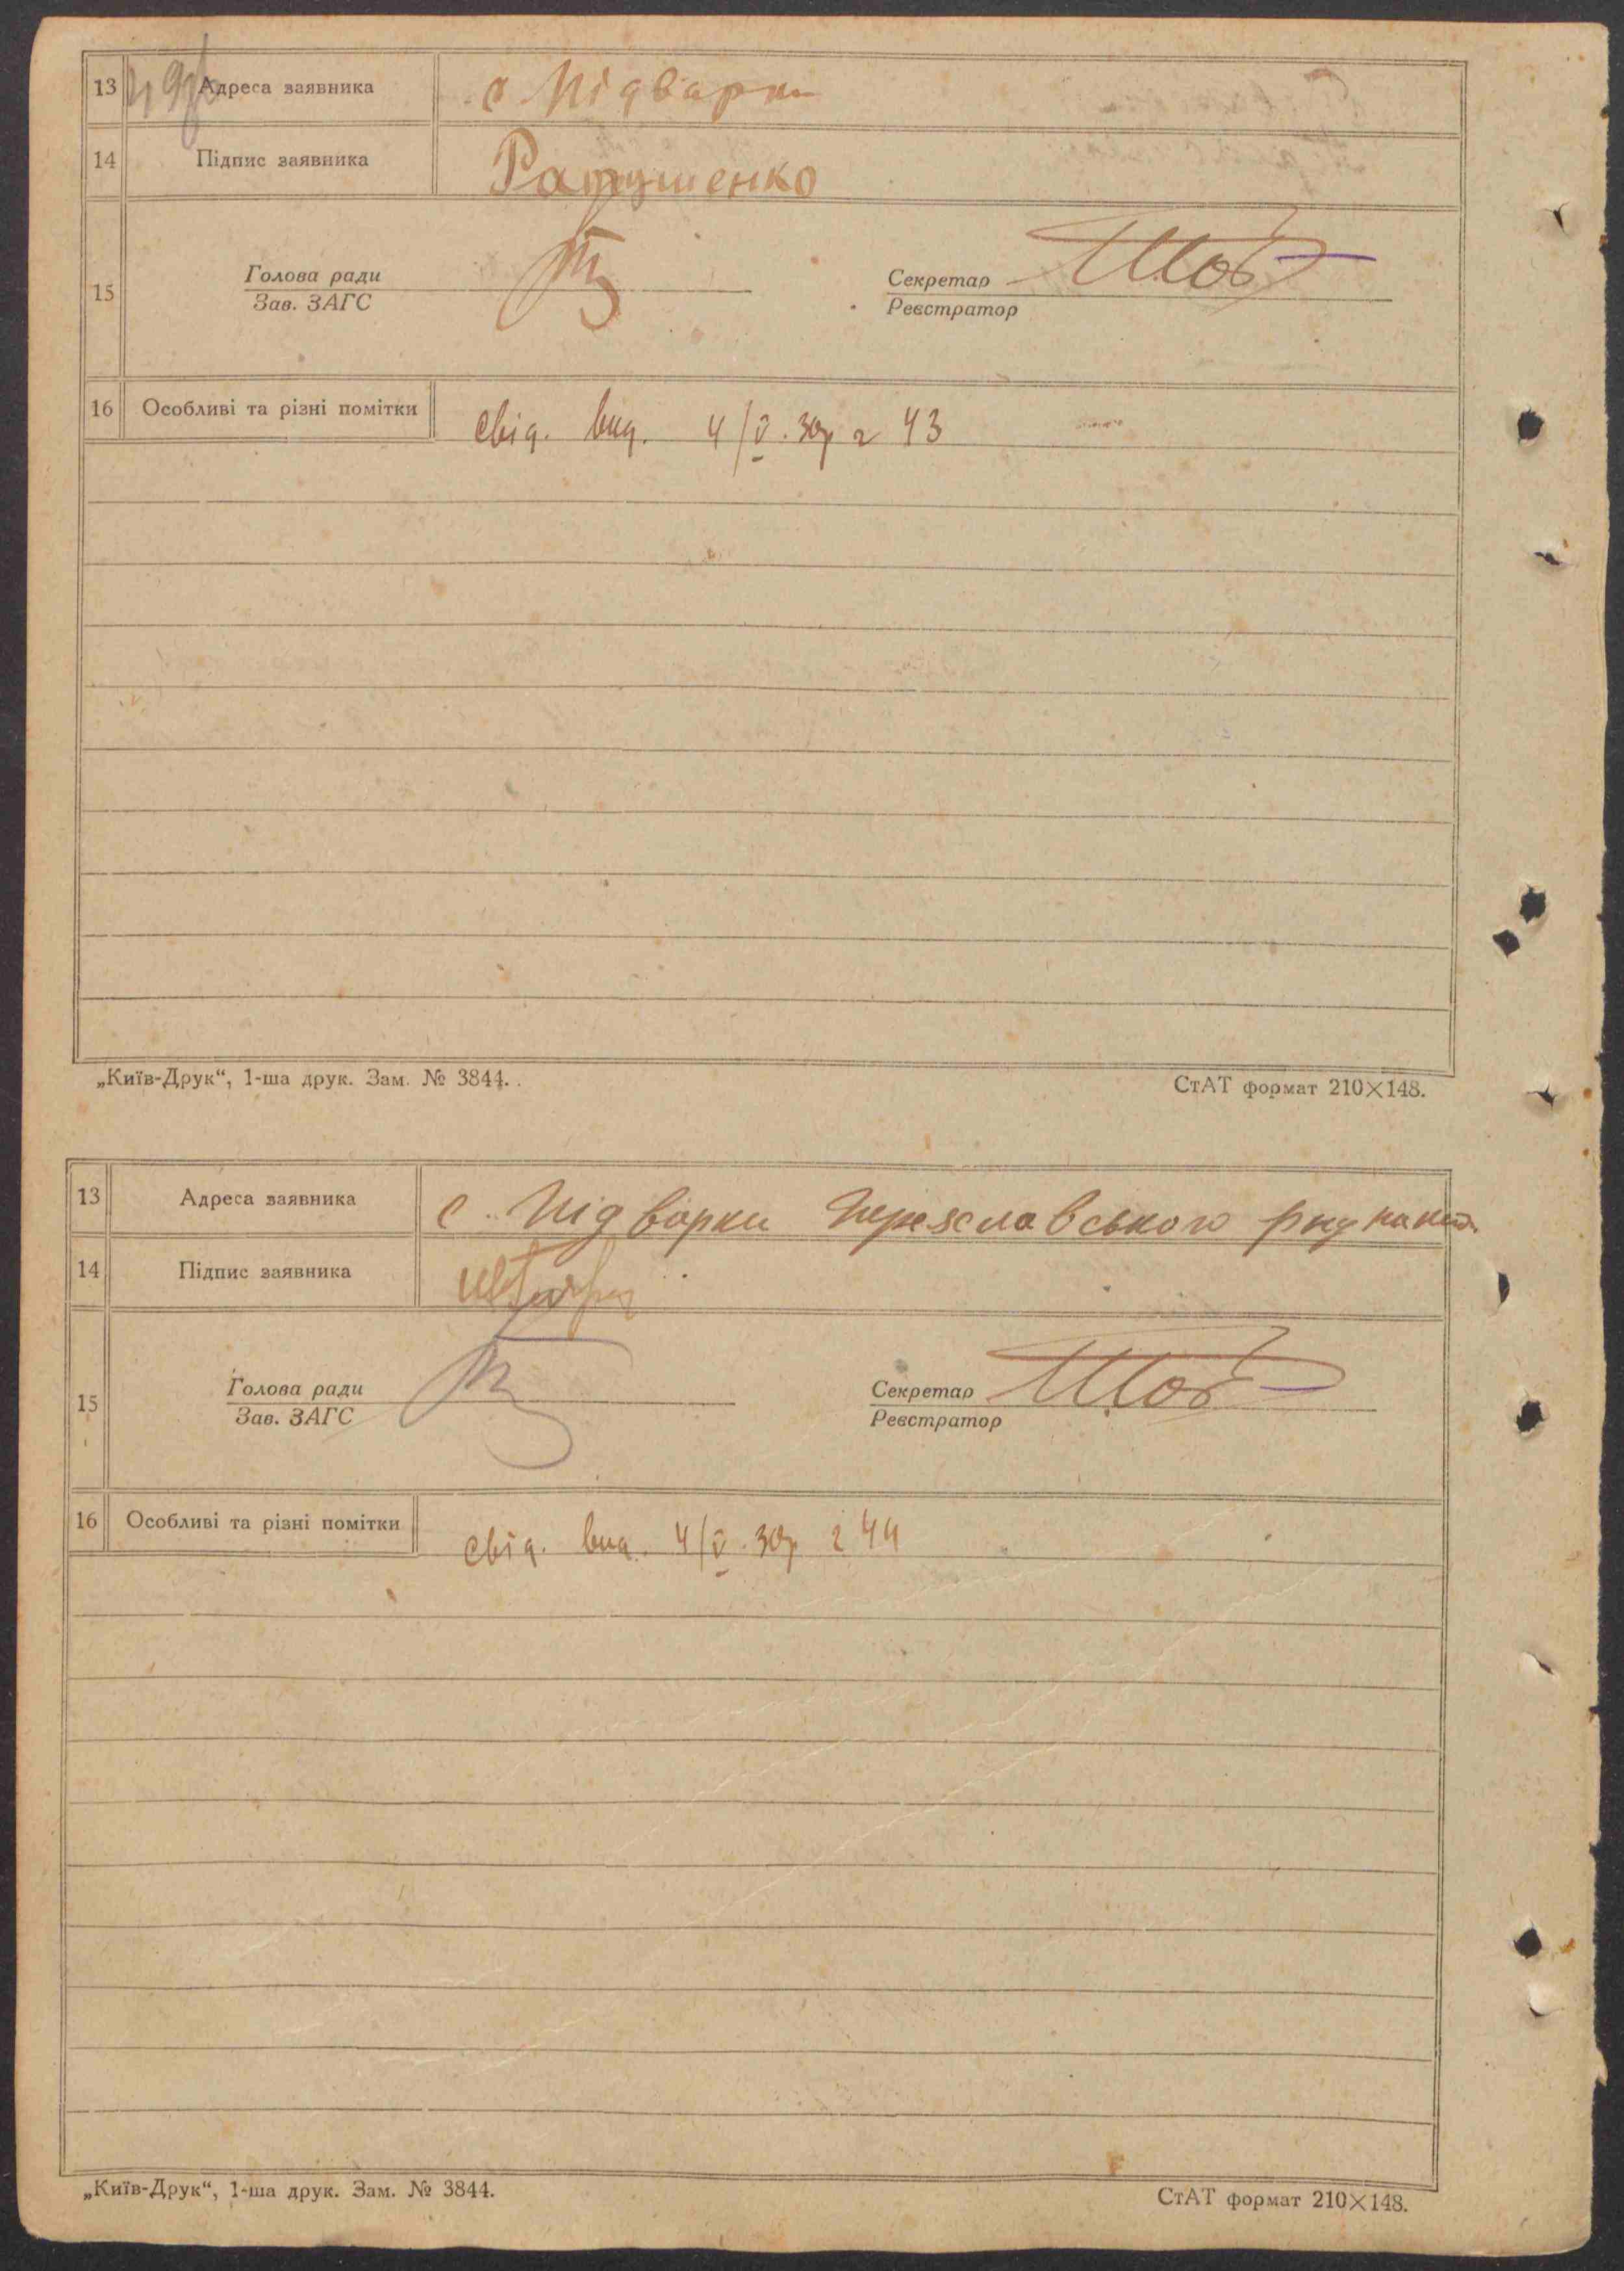 13 Адреса заявника с. Підварки
14 Підпис заявника Ратушенко
15 Голова ради Секретар
Зав. ЗАГС Реєстратор
16 Особливі та різні помітки свід. вид. 4/V. 30р 43
„Київ-Друк“, 1-ша друк. Зам. № 3844. СтАТ формат 210×148.
13 Адреса заявника с. Підварки Переяславського
14 Підпис заявника
15 Голова ради Секретар
Зав. ЗАГС Реєстратор
16 Особливі та різні помітки свід. вид. 4/V. 30р 44
„Київ-Друк“, 1-ша друк. Зам. № 3844. СтАТ формат 210×148.